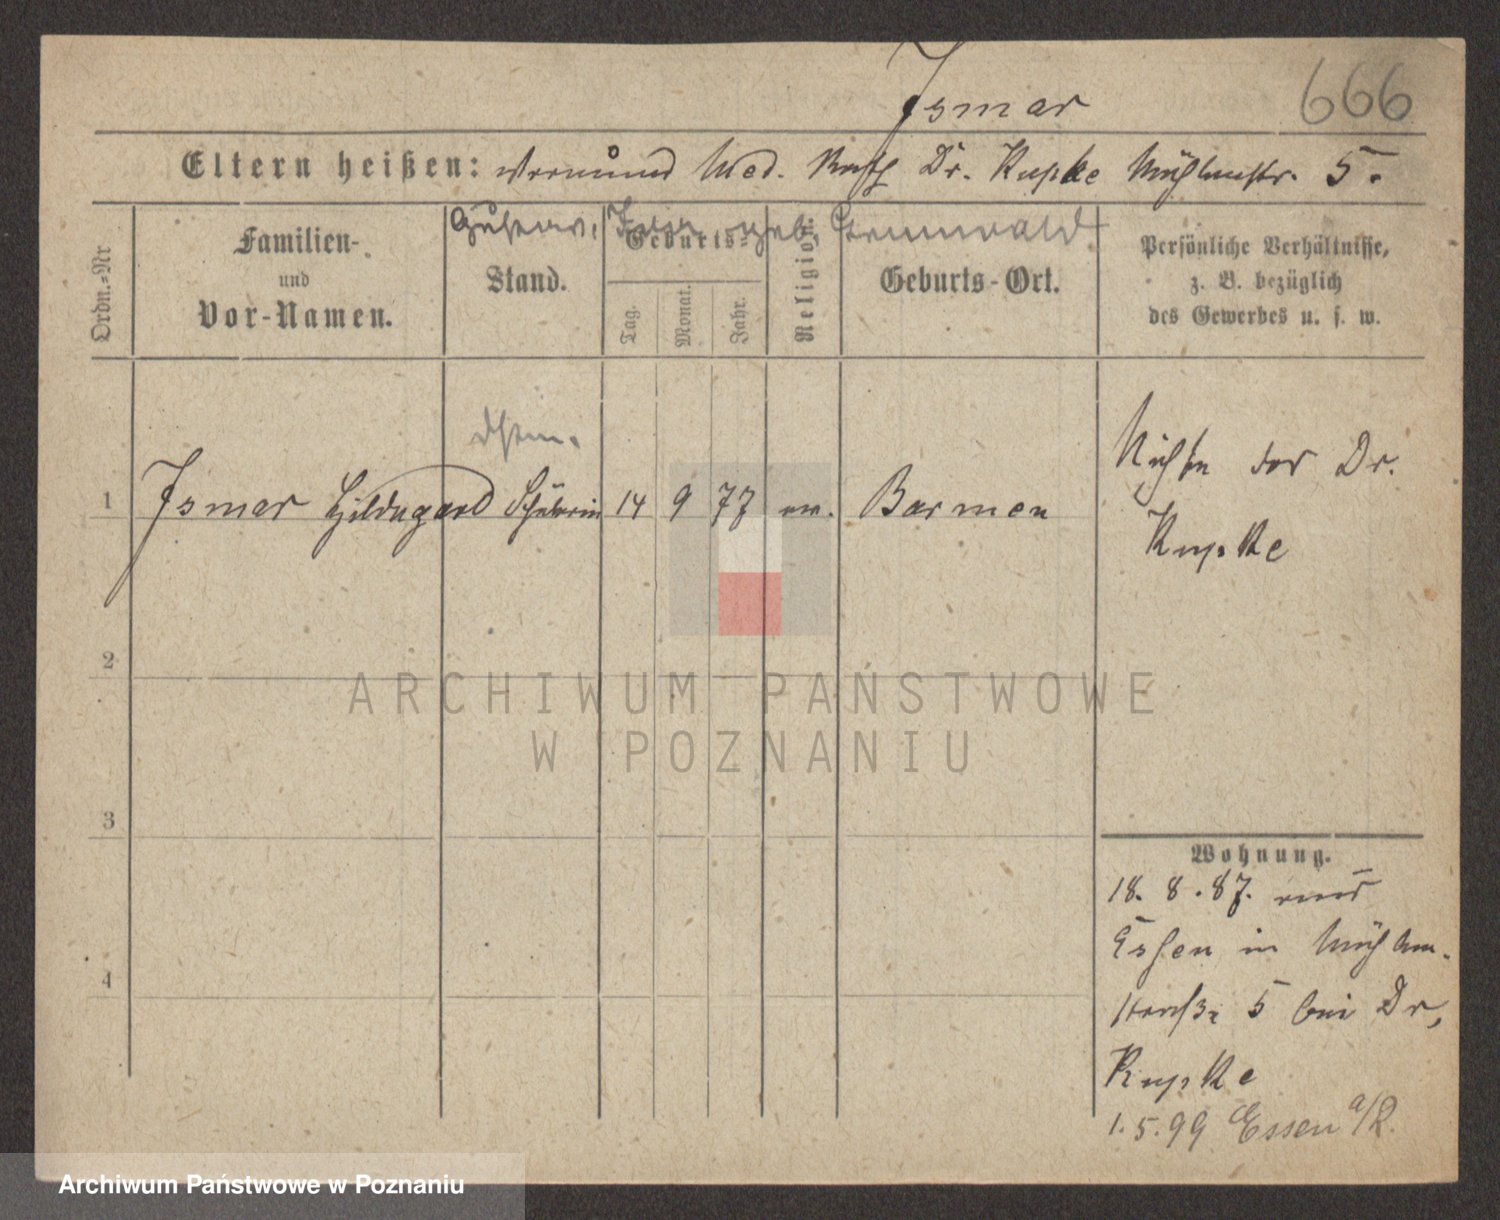 Ismar
666
Eltern heißen: Vormund Med. Rath Dr. Rupke Mühlenstr. 5.
Gustav, geb. Grunwald
Ordn.-Nr
Familien-
und
Vor-Namen.
Stand.
Geburts-
Tag.
Monat.
Jahr.
Religion.
Geburts-Ort.
Persönliche Verhältnisse,
z. B. bezüglich
des Gewerbes u. s. w.
1 Ismar Hildegard Schülerin 14 9 77 ev. Barmen
Nichte des Dr.
Rupke
2
3
4
Wohnung.
18. 8. 87. aus
Essen in Mühlen-
straße 5 bei Dr.
Rupke
1.5.99 Essen a/R.
ARCHIWUM PAŃSTWOWE
W POZNANIU
Archiwum Państwowe w Poznaniu